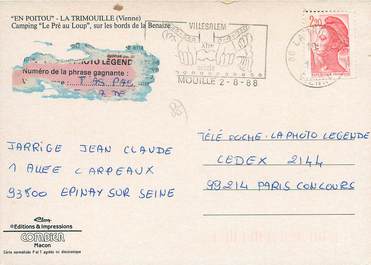 "EN POITOU" - LA TRIMOUILLE (Vienne)
Camping "Le Pré au Loup", sur les bords de la Benaize
PHOTO LEGEND
Numéro de la phrase gagnante :
T AS PAS
A DE
VILLESALEM
XIIe
MOUILLE 2-8-88
86 LA
2,20
JARRIGE JEAN CLAUDE
1 ALLEE CARPEAUX
93800 EPINAY SUR SEINE
TÉLÉ POCHE - LA PHOTO LEGENDE
CEDEX 2144
99214 PARIS CONCOURS
Editions & Impressions
COMBIER
Macon